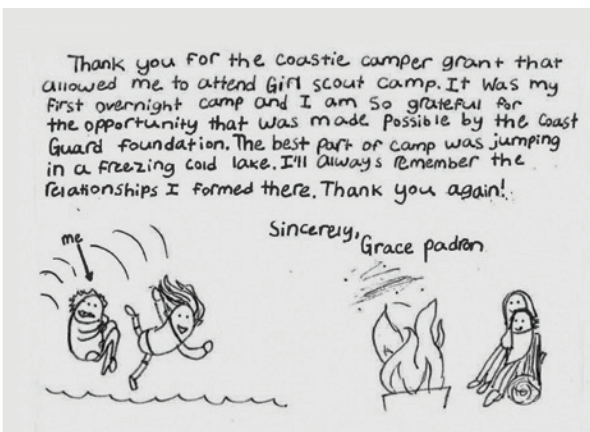 Thank you for the coastie camper grant that
allowed me to attend Girl scout camp. It was my
first overnight camp and I am so grateful for
the opportunity that was made possible by the Coast
Guard foundation. The best part of camp was jumping
in a freezing cold lake. I'll always remember the
relationships I formed there. Thank you again!
Sincerely,
Grace padron
me